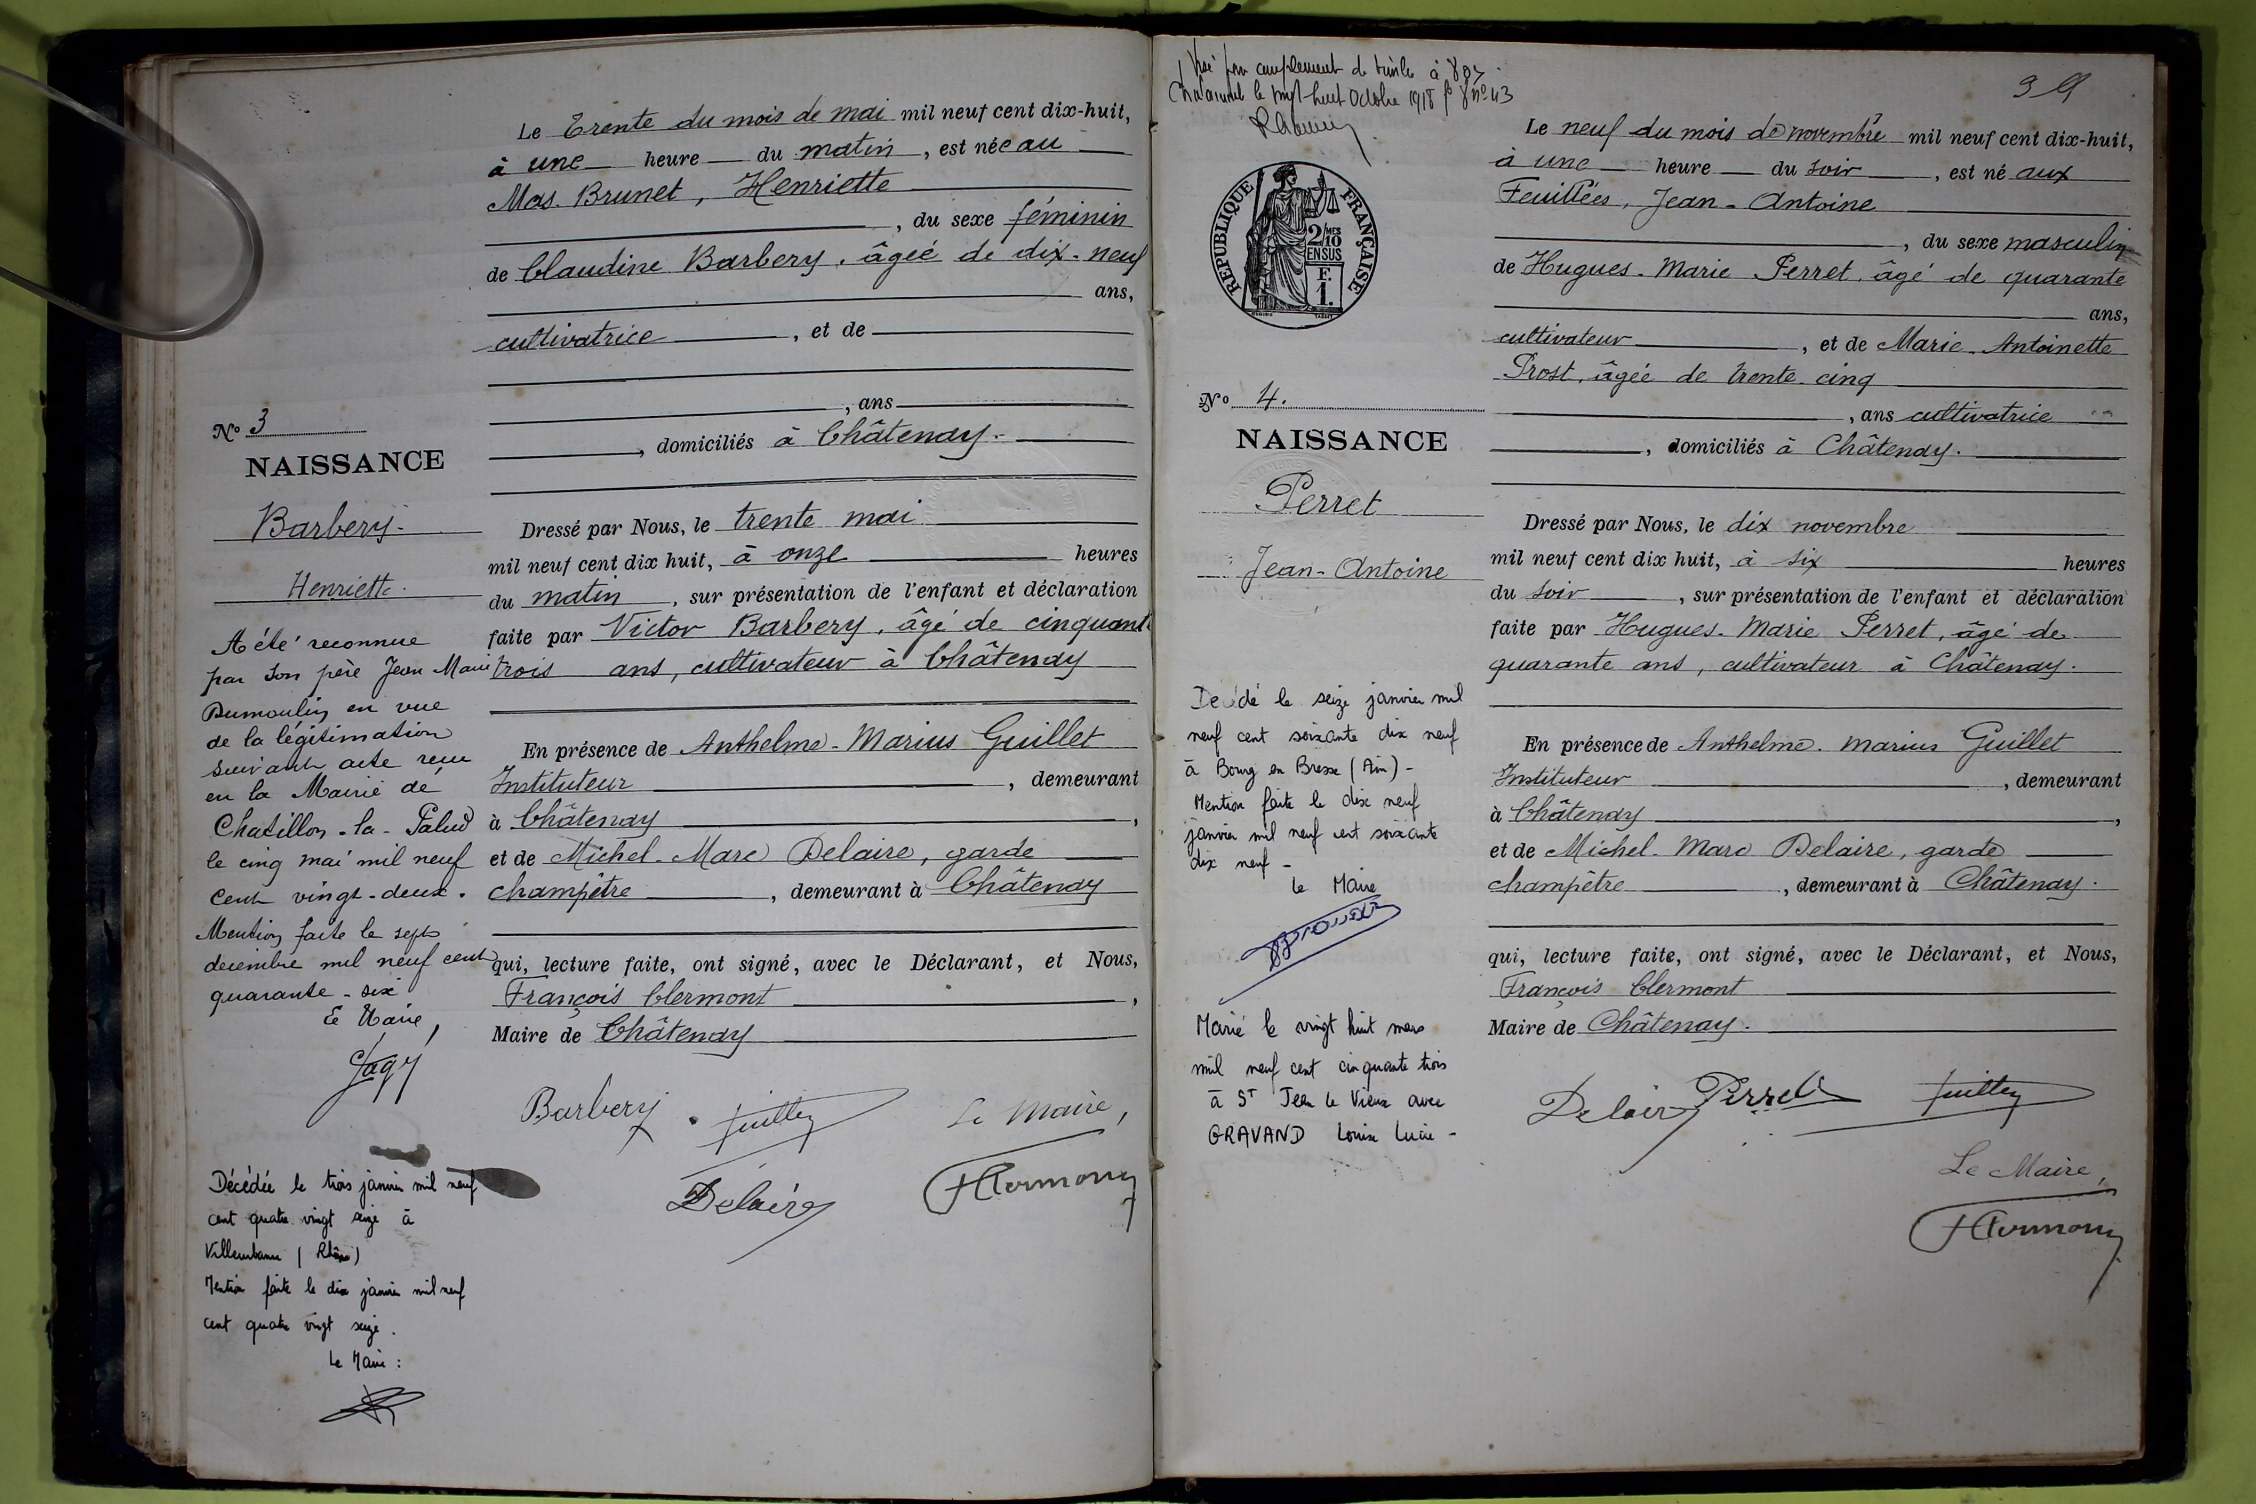 Le Trente du mois de mai mil neuf cent dix-huit,
à une heure du matin, est née au
Mas Brunet, Henriette
, du sexe féminin
de Claudine Barbery, âgée de dix-neuf
ans,
cultivatrice, et de
, ans
, domiciliés à Châtenay.
No 3
NAISSANCE
Barbery
Henriette
Dressé par Nous, le trente mai
mil neuf cent dix huit, à onze heures
du matin, sur présentation de l'enfant et déclaration
faite par Victor Barbery, âgé de cinquante
trois ans, cultivateur à Châtenay
En présence de Anthelme-Marius Guillet
Instituteur, demeurant
à Châtenay,
et de Michel-Marc Delaire, garde
champêtre, demeurant à Châtenay
qui, lecture faite, ont signé, avec le Déclarant, et Nous,
François Clermont,
Maire de Châtenay
Barbery
Le Maire,
Delaire
A été reconnue
par son père Jean Marie
Dumoulin en vue
de la légitimation
suivant acte reçu
en la Mairie de
Chatillon-la-Palud
le cinq mai mil neuf
cent vingt-deux.
Mention faite le sept
décembre mil neuf cent
quarante-six
Le Maire,
Décédée le trois janvier mil neuf
cent quatre vingt seize à
Villeurbanne (Rhône)
Mention faite le dix janvier mil neuf
cent quatre vingt seize.
Le Maire :
Visé pour complement de timbre à
le vingt-huit Octobre 1918
39
RÉPUBLIQUE FRANÇAISE
2/10 MES
EN SUS
F.
1.
Le neuf du mois de novembre mil neuf cent dix-huit,
à une heure du soir, est né aux
Feuillées, Jean-Antoine
, du sexe masculin
de Hugues-Marie Perret, âgé de quarante
ans,
cultivateur, et de Marie-Antoinette
Prost, âgée de trente cinq
, ans cultivatrice
, domiciliés à Châtenay.
No 4.
NAISSANCE
Perret
Jean-Antoine
Dressé par Nous, le dix novembre
mil neuf cent dix huit, à six heures
du soir, sur présentation de l'enfant et déclaration
faite par Hugues-Marie Perret, âgé de
quarante ans, cultivateur à Châtenay.
En présence de Anthelme-Marius Guillet
Instituteur, demeurant
à Châtenay,
et de Michel-Marc Delaire, garde
champêtre, demeurant à Châtenay.
qui, lecture faite, ont signé, avec le Déclarant, et Nous,
François Clermont
Maire de Châtenay.
Delaire Perret
Le Maire,
Décédé le seize janvier mil
neuf cent soixante dix neuf
à Bourg en Bresse (Ain)-
Mention faite le dix neuf
janvier mil neuf cent soixante
dix neuf-
Le Maire
Marié le vingt huit mars
mil neuf cent cinquante trois
à St Jean le Vieux avec
GRAVAND Louise Lucie-